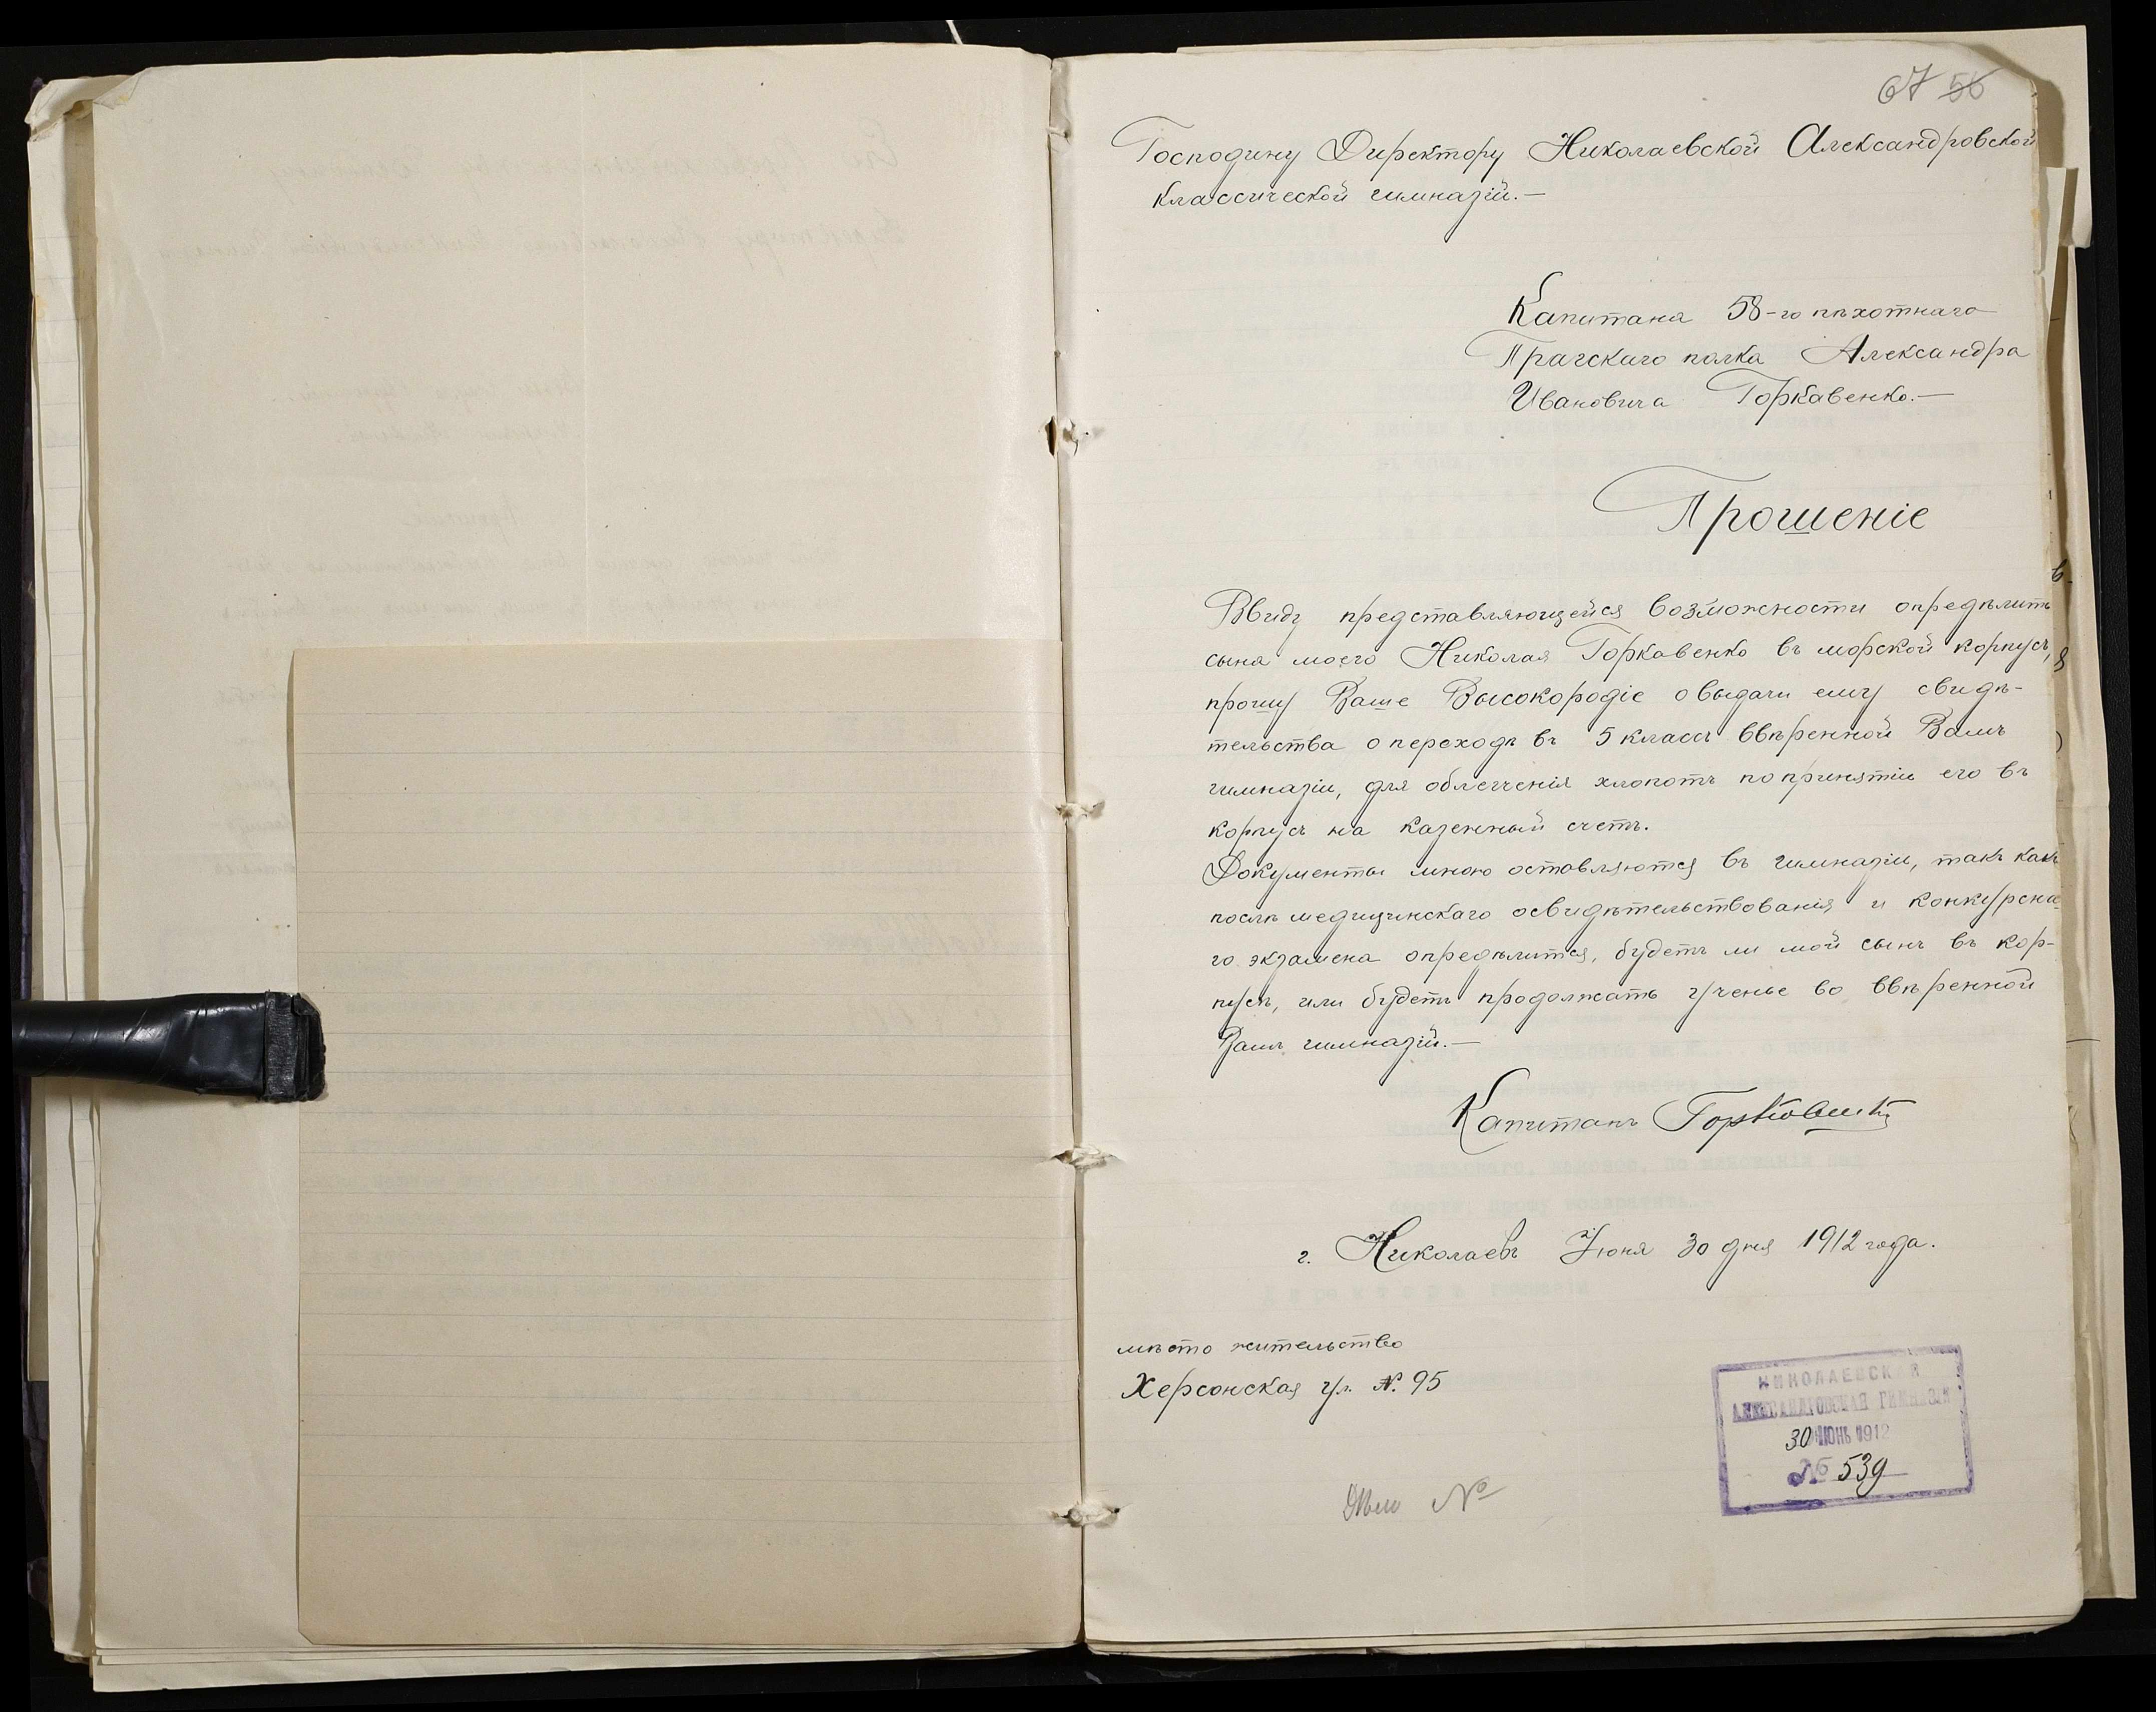 67 56
Господину Директору Николаевской Александровской
классической гимназiй.—
Капитана 58-го пѣхотнаго
Прагскаго полка Александра
Ивановича Горкавенко.—
Прошенiе
Ввиду представляющейся возможности опредѣлить
сына моего Николая Горкавенко въ морской корпусъ,
прошу Ваше Высокородiе о выдачи ему свидѣ-
тельства о переходѣ въ 5 классъ ввѣренной Вамъ
гимназiи, для облегченiя хлопотъ по принятiи его въ
корпусъ на казенный счетъ.
Документы мною оставляются въ гимназiи, такъ какъ
послѣ медицинскаго освидѣтельствованiя и конкурсна
го экзамена опредѣлится, будетъ ли мой сынъ въ кор-
пусѣ, или будетъ продолжать ученье во ввѣренной
Вамъ гимназiй.—
Капитанъ Горкавенко
г. Николаевъ Iюня 30 дня 1912 года.
мѣсто жительство
Херсонская ул. №. 95
НИКОЛАЕВСКАЯ
АЛЕКСАНДРОВСКАЯ ГИМНАЗІЯ
30 ИЮНЬ 1912
№ 539
Дѣло №